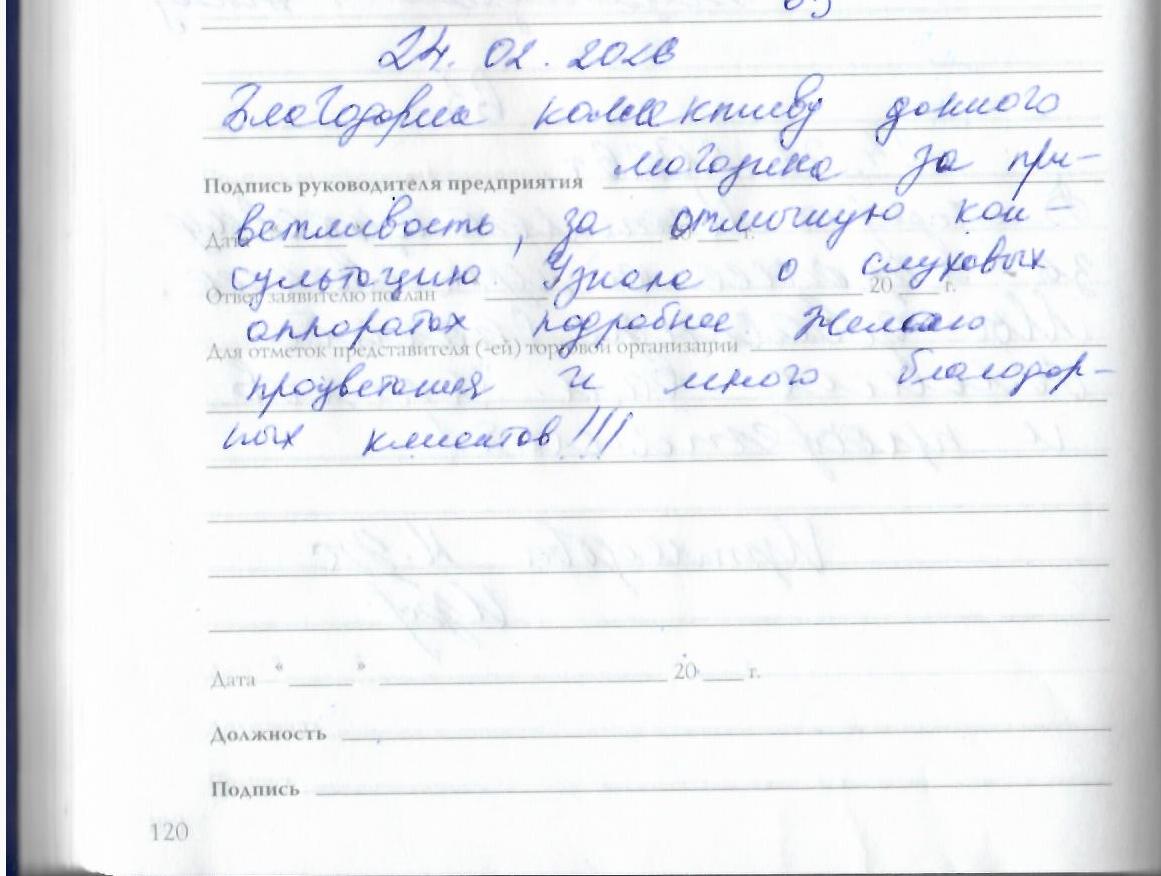 24.02.2026
Благодарна коллективу данного
магазина за при-
Подпись руководителя предприятия
ветливость, за отличную кон-
сультацию. Узнала о слуховых
20 г.
Ответ заявителю послан
аппаратах подробнее. Желаю
Для отметок представителя (-ей) торговой организации
процветания и много благодар-
ных клиентов!!!
Дата « » 20 г.
Должность
Подпись
120